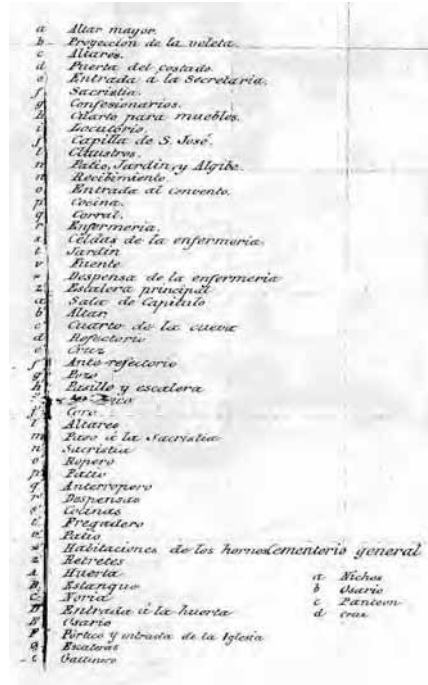 a Altar mayor.
b Proyeccion de la veleta.
c Altares.
d Puerta del costado.
e Entrada á la Secretaria.
f Sacristia.
g Confesionarios.
h Cuarto para muebles.
i Locutório
j Capilla de S. José.
l Claustros.
m Patio, Jardin, y Algibe.
n Recibimiento.
o Entrada al Convento.
p Cocina.
q Corral.
r Enfermeria.
s Celdas de la enfermeria.
t Jardin
v Fuente
Despensa de la enfermeria
z Escalera principal
a Sala de Capitulo
b Altar
c Cuarto de la cueva
d Refectorio
e Cruz
f Ante-refectorio
g Pozo
h Pasillo y escalera
j Coro
l Altares
m Paso á la Sacristia
n Sacristia
o Ropero
p Patio
q Anterropero
r Despensas
s Cocinas
t Fregadero
v Patio
Habitaciones de los hornos
z Retretes
A Huerta
B Estanque
C Noria
D Entrada á la huerta
E Osario
F Pórtico y entrada de la Iglesia
G Escaleras
Gallinero
Cementerio general
a Nichos
b Osario
c Panteon
d Cruz